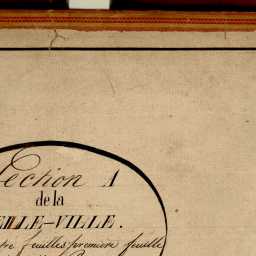 Section A
de la
VILLE-VILLE.
feuilles première feuille